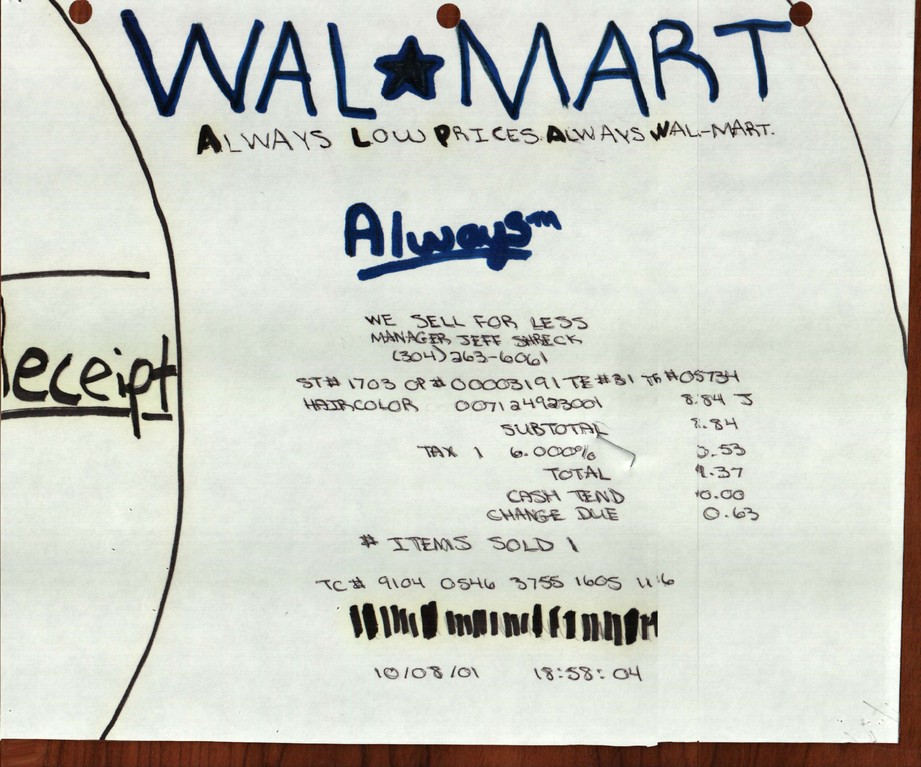 WAL★MART
ALWAYS LOW PRICES. ALWAYS WAL-MART.
Always™
WE SELL FOR LESS
MANAGER JEFF SHRECK
(304) 263-6061
eceipt
ST# 1703 OP# 00003191 TE #31 TR #05734
HAIRCOLOR 007124923001 8.84 J
SUBTOTAL 8.84
TAX 1 6.000% 0.53
TOTAL 9.37
CASH TEND 10.00
CHANGE DUE 0.63
# ITEMS SOLD 1
TC# 9104 0546 3755 1605
10/08/01 18:58:04